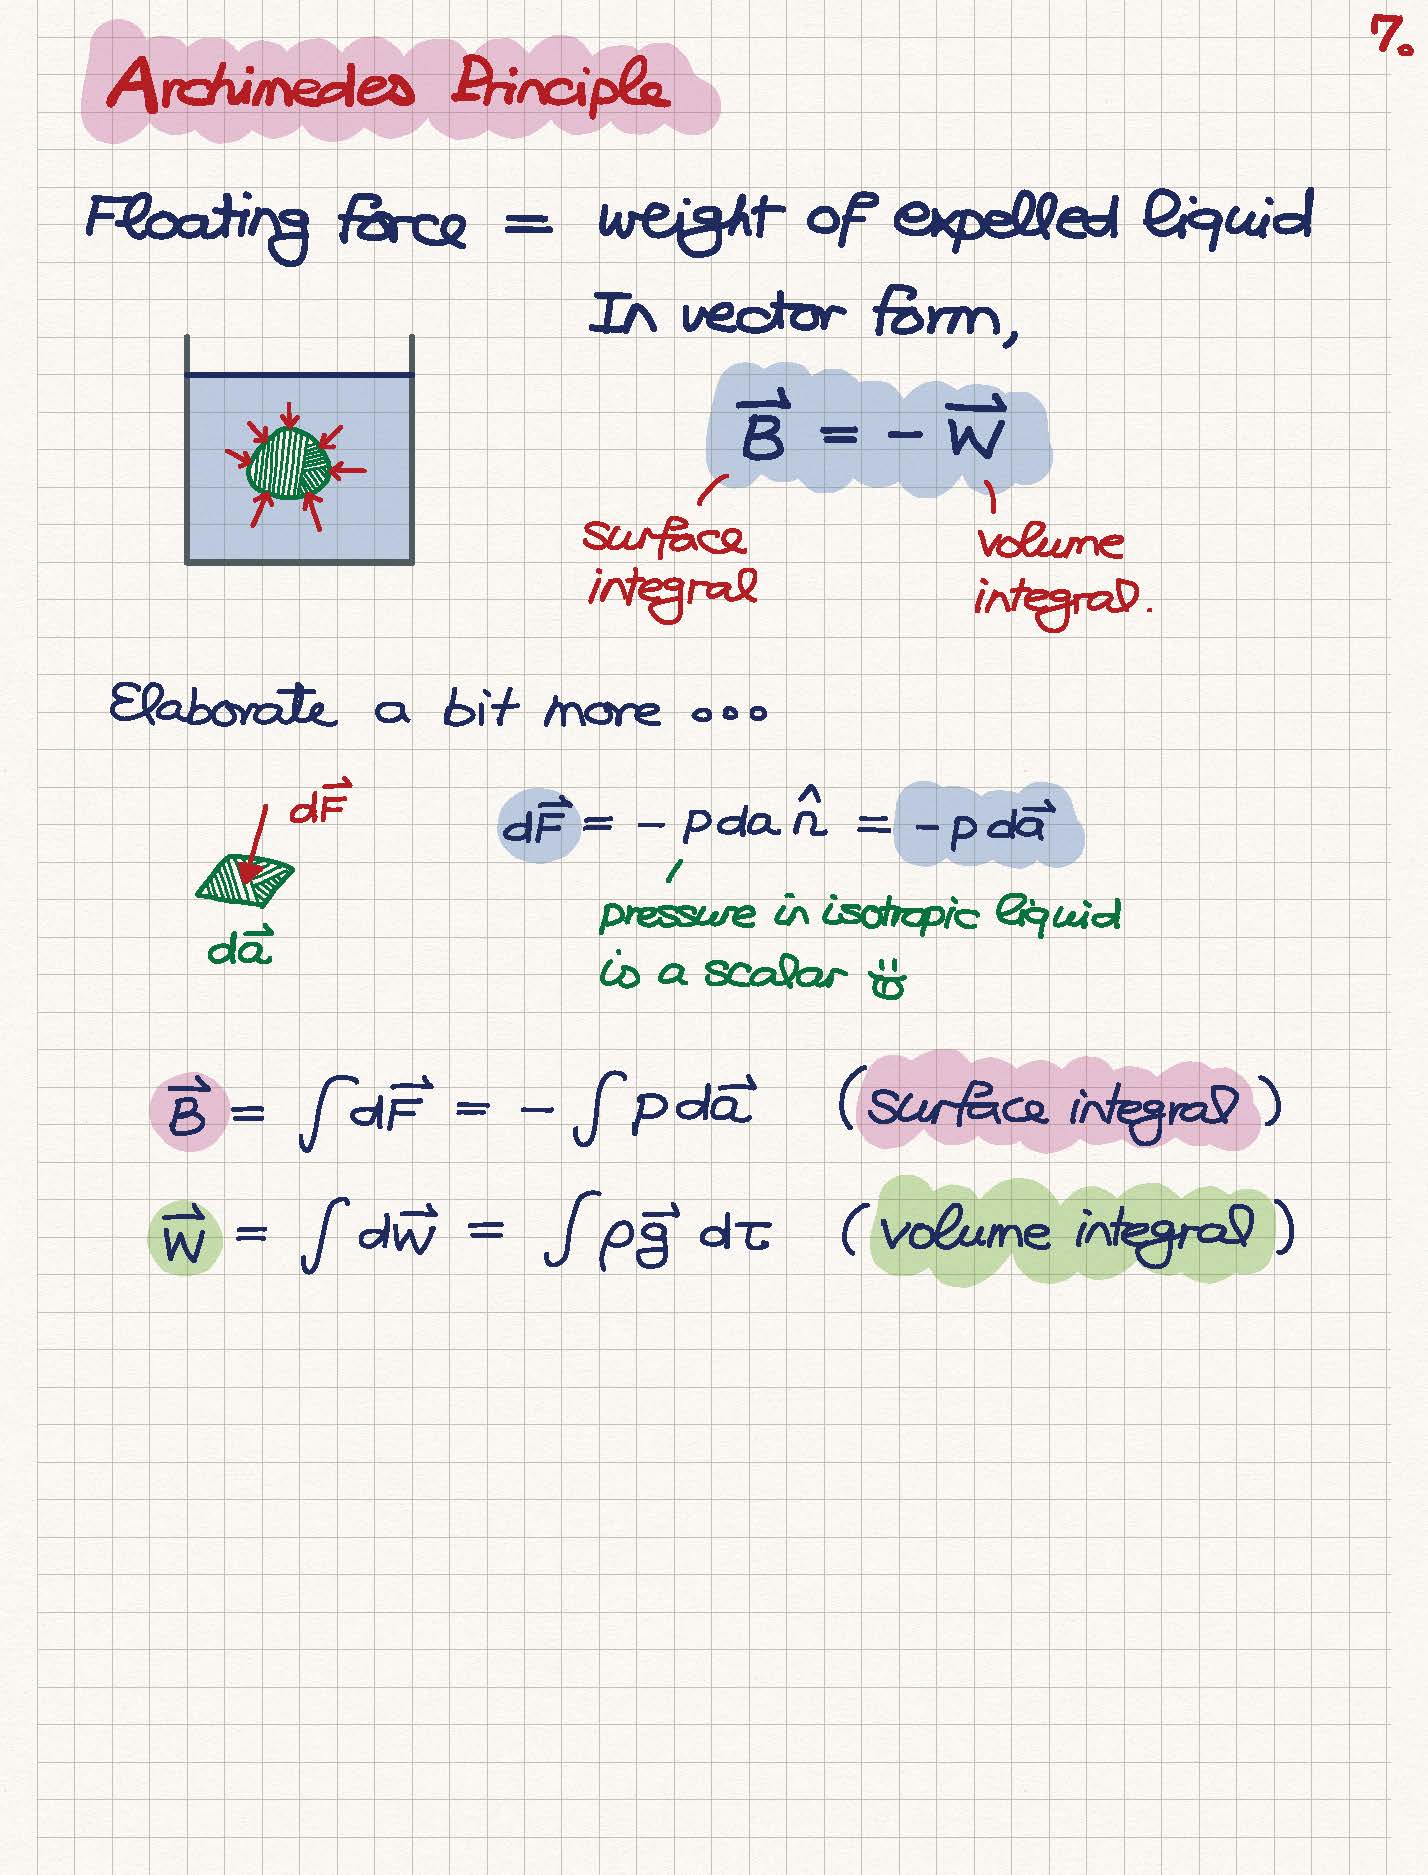 7.
Archimedes Principle
Floating force = weight of expelled liquid
In vector form,
B⃗ = - W⃗
surface integral
volume integral.
Elaborate a bit more ...
dF⃗
da⃗
dF⃗ = - p da n̂ = - p da⃗
pressure in isotropic liquid
is a scalar
B⃗ = ∫ dF⃗ = - ∫ p da⃗ (surface integral)
W⃗ = ∫ dW⃗ = ∫ ρg⃗ dτ (volume integral)